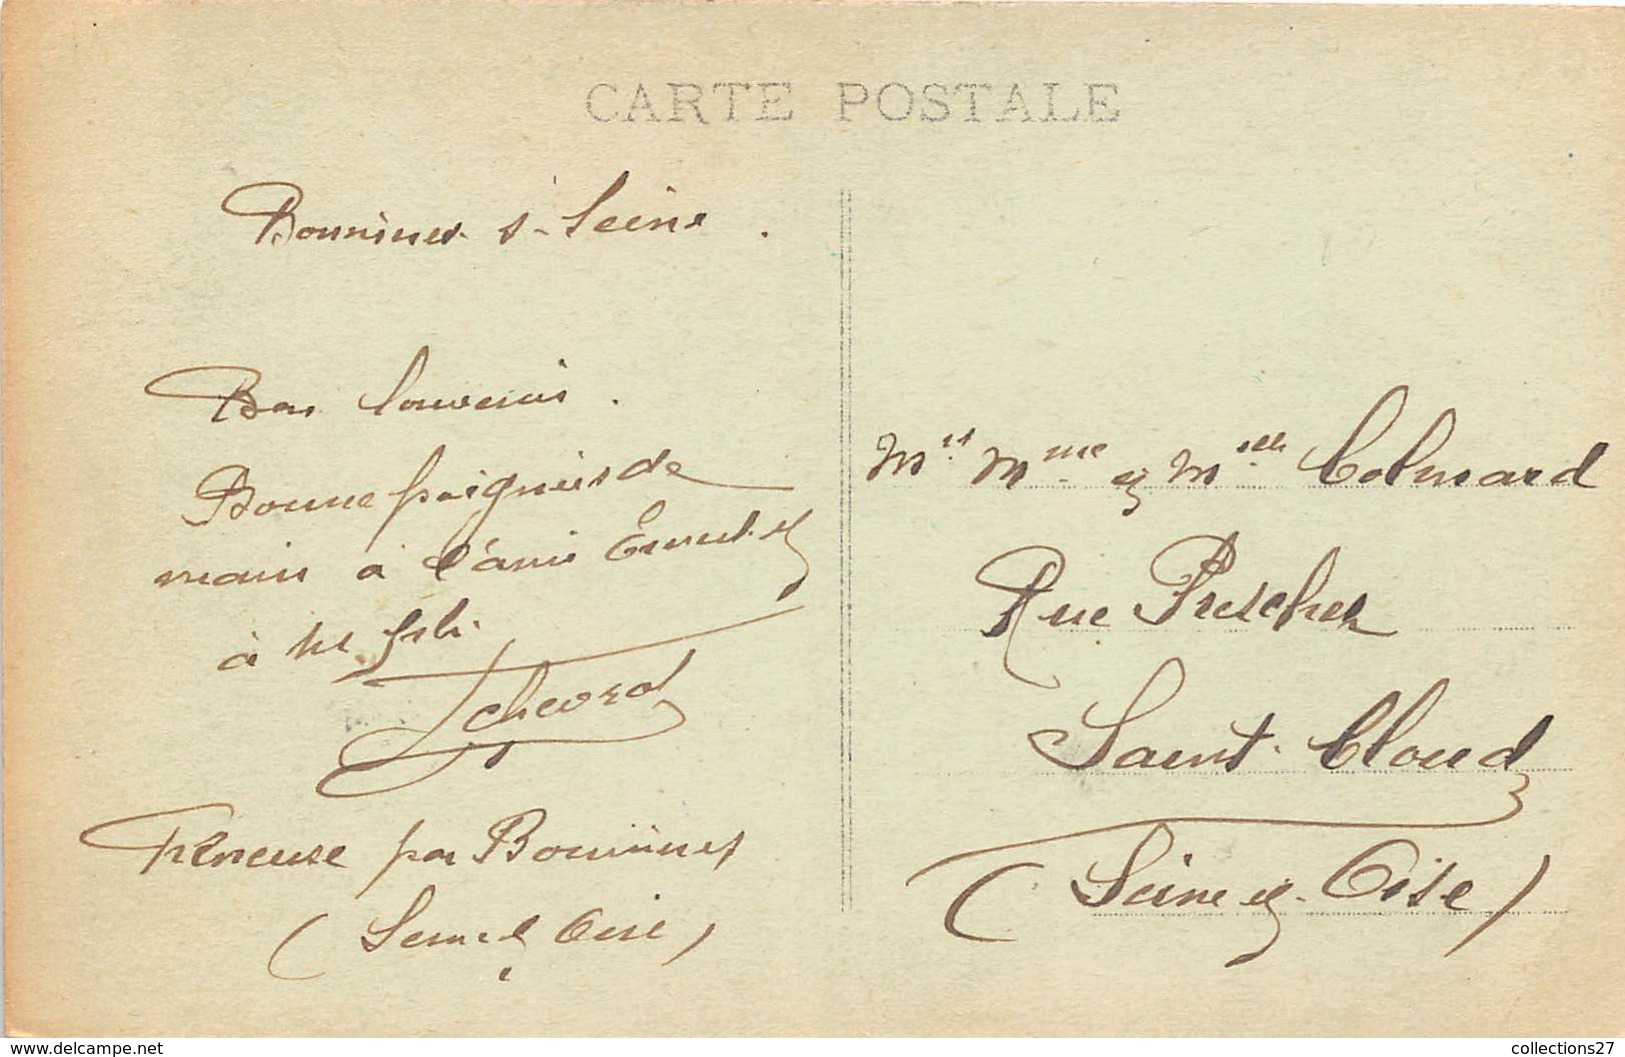 CARTE POSTALE
Bonnières s- Seine.
Bon Souvenir.
Bonne poignées de
main à l'ami Ernest et
à
Freneuse par Bonnières
(Seine et Oise)
Mr Mme et Melle Colmard
Rue Prescher
Saint-Cloud
(Seine et-Oise)
www.delcampe.net
collections27